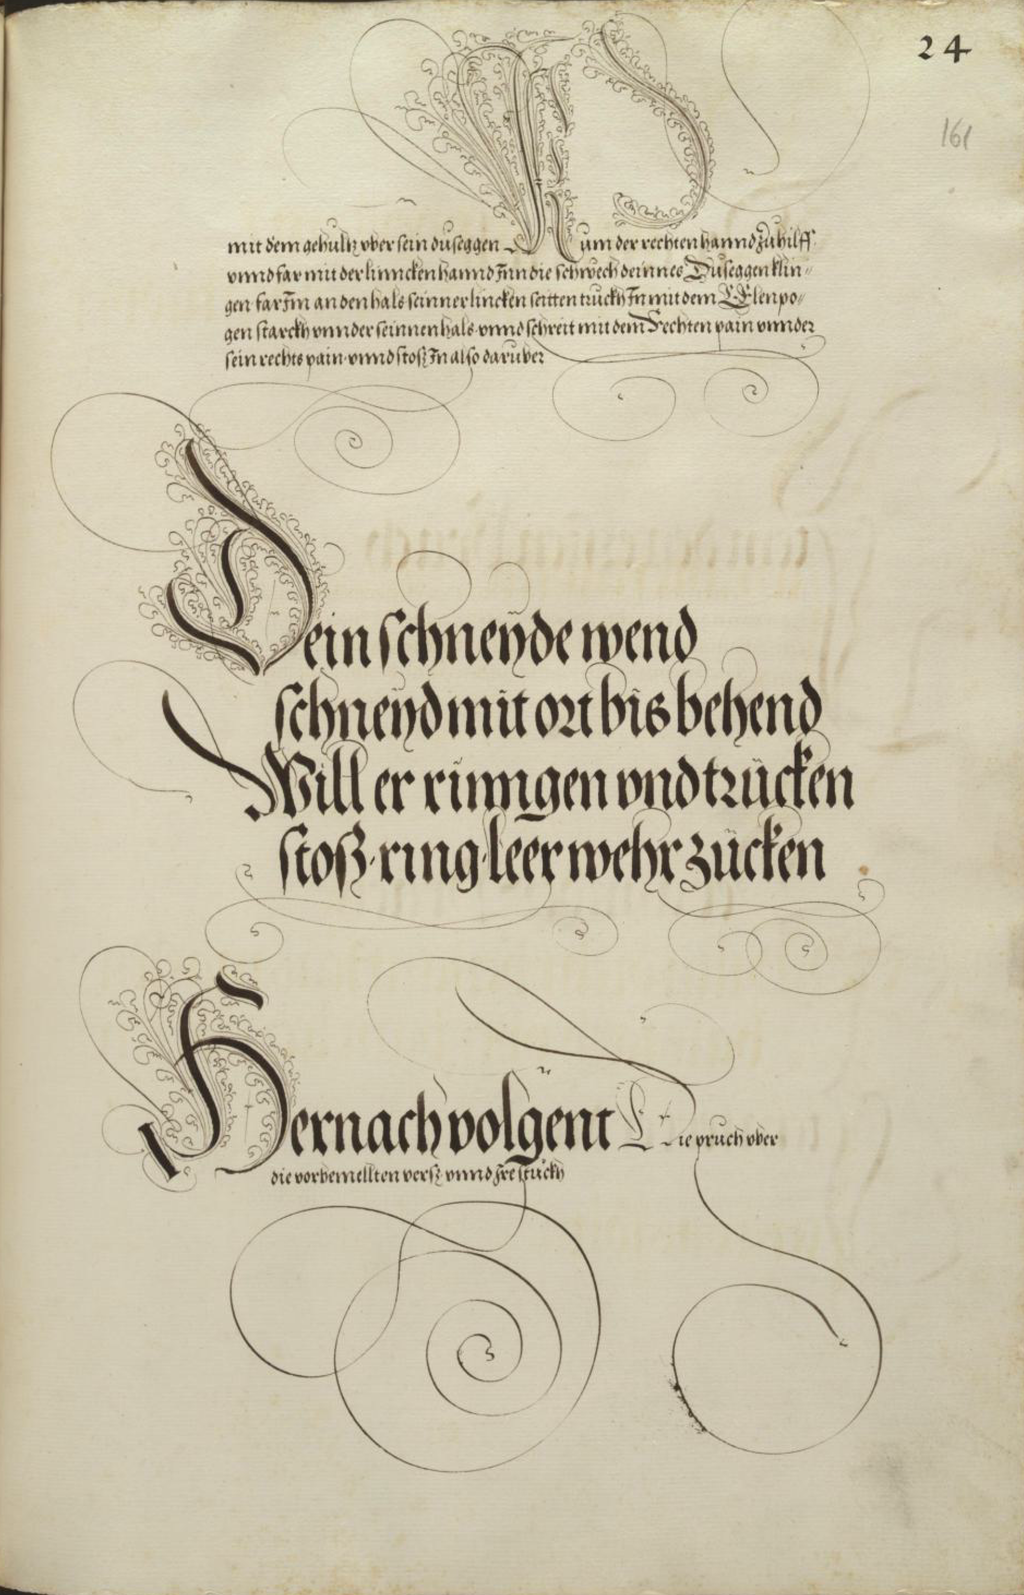 24
161
mit dem gehultz vber sein duseggen Num der rechten hannd zu hilff
vnnd far mit der linncken hannd Inn die schwech deinnes Duseggen klin-
gen far Im an den hals seinner lincken seitten truckh In mit dem Elenpo-
gen starckh vnnder seinnen hals vnnd schreit mit dem Rechten pain vnnder
sein rechts pain vnnd stoß In also daruber
Dein schneyde wend
schneyd mit ort bis behend
Will er rinngen vnd trücken
stoß ring leer wehr zücken
Hernach volgent Die pruch vber
die vorbemellten verß vnnd Ire stuckh